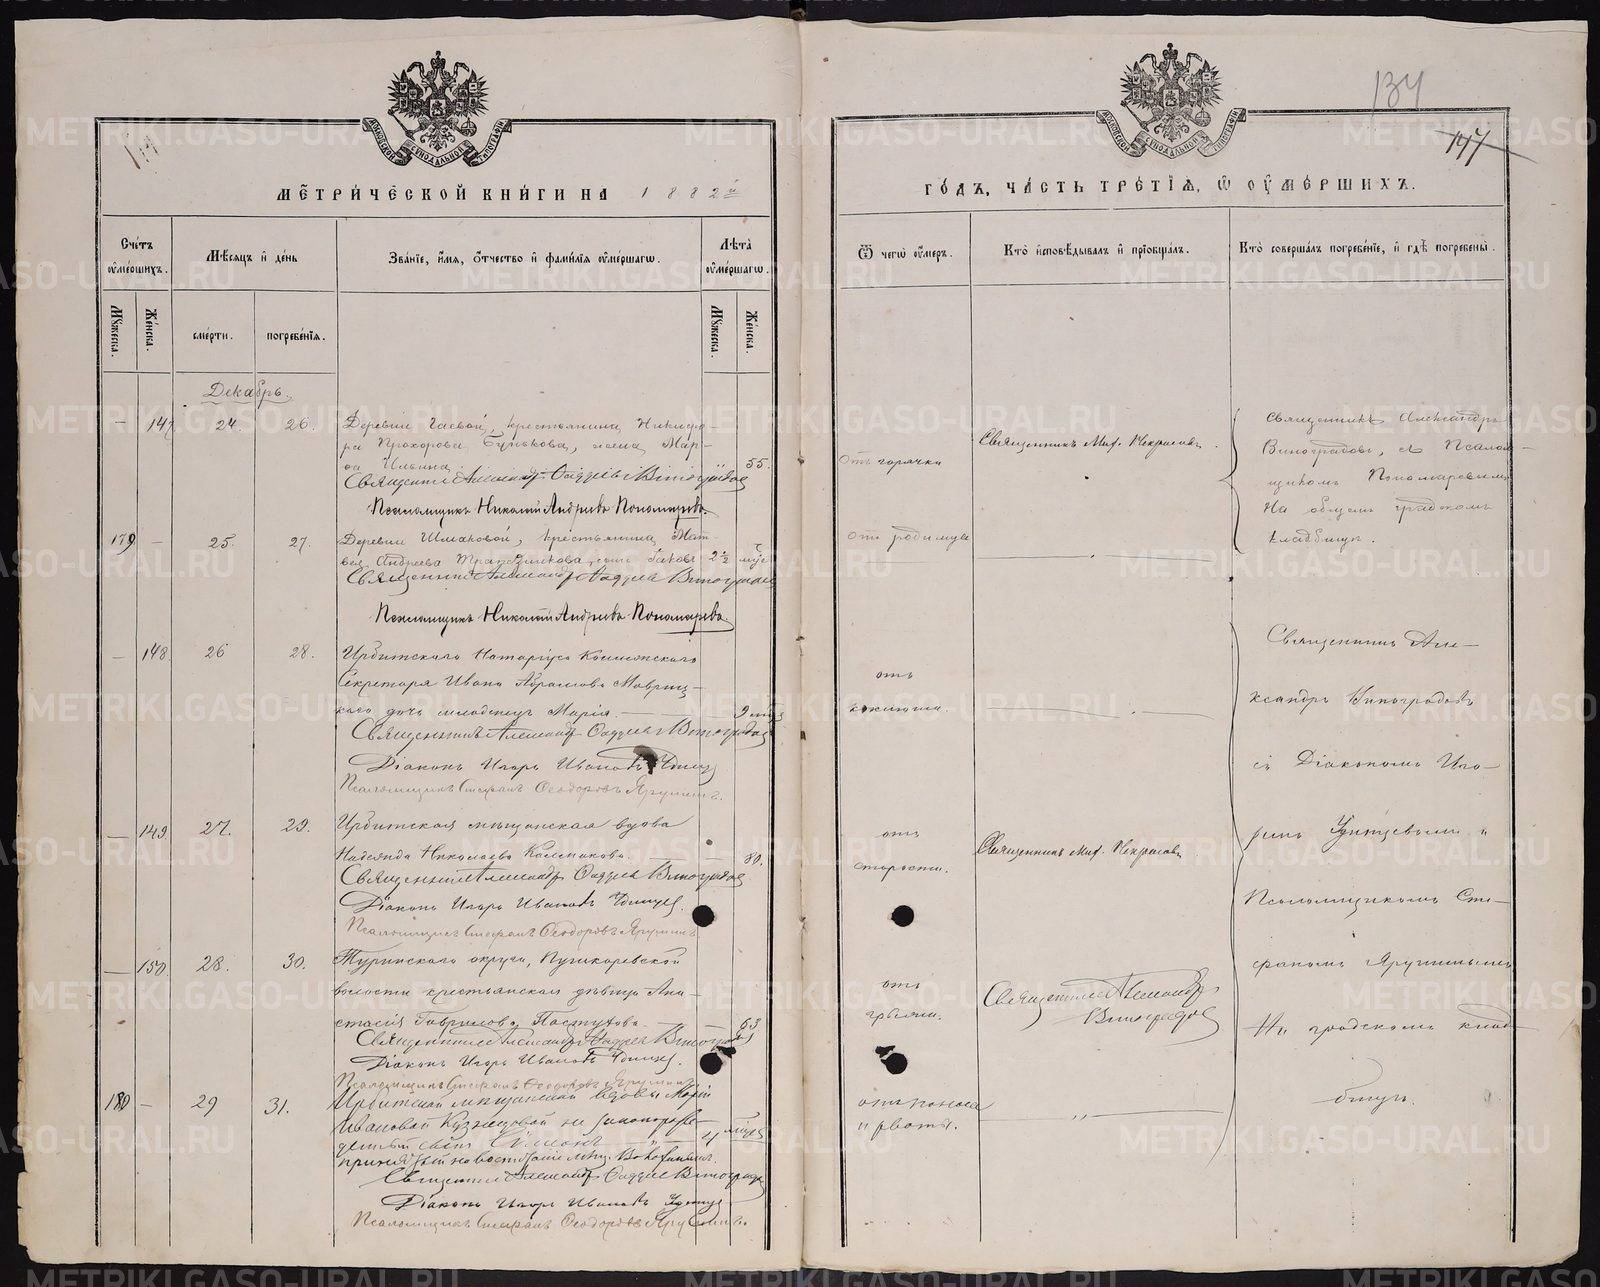 134
147
МЕТРИЧЕСКОЙ КНИГИ НА 1882 й
ГОДЪ, ЧАСТЬ ТРЕТІЯ, Ѿ ОУМЕРШИХЪ.
Счетъ оумершихъ.
Мѣсяцъ и день
Званіе, имя, отчество и фамилія оумершагѡ.
Лѣта оумершагѡ.
Ѿ чегѡ оумеръ.
Кто исповѣдывалъ и пріобщалъ.
Кто совершалъ погребеніе, и гдѣ погребены.
Мꙋжеска.
Женска.
смерти.
погребенія.
Мꙋжеска.
Женска.
Декабрь.
— 147. 24. 26.
Деревни Гаевой, крестьянина Никифо-
ра Прохорова Бунькова, жена Мар-
фа Ильина 55.
Священникъ Александръ Андреевъ Виноградовъ
Псаломщикъ Николай Андреевъ Пономаревъ.
Отъ горячки
Священникъ Мих. Некрасовъ.
Священникъ Александръ
Виноградовъ, съ Псалом-
щикомъ Пономаревымъ
На общемъ градскомъ
кладбищѣ.
179 — 25. 27.
Деревни Шмаковой, крестьянина Мат-
вея Андреева сынъ Іаковъ 2½
Священникъ Александръ Андреевъ Виноградовъ
Псаломщикъ Николай Андреевъ Пономаревъ
отъ родимца
— 148. 26 28.
Ирбитскаго Нотаріуса Коллежскаго
Секретаря Ивана Абрамова Мавриц-
каго дочь младенецъ Марія. 9 мѣс
Священникъ Александръ Андреевъ Виноградовъ
Діаконъ Игорь Ивановъ Удинцев
Псаломщикъ Стефанъ Ѳеодоровъ Ярушинъ.
отъ
коклюша.
Священникъ Але-
ксандръ Виноградовъ
съ Діакономъ Иго-
ремъ Удинцевымъ и
Псаломщикомъ Сте-
фаномъ Ярушинымъ
На градскомъ клад-
бищѣ.
— 149. 27. 29.
Ирбитская мѣщанская вдова
Надежда Николаева Калмакова. 80.
Священникъ Александръ Андреевъ Виноградовъ
Діаконъ Игорь Ивановъ Удинцев.
Псаломщикъ Стефанъ Ѳеодоровъ Ярушинъ
отъ
старости.
Священникъ Мих. Некрасовъ
— 150. 28. 30.
Туринскаго округа, Пушкаревской
волости крестьянская дѣвица Ана-
стасія Гаврилова Пастухова. 63
Священникъ Александръ Андреевъ Виноградовъ
Діаконъ Игорь Ивановъ Удинцев.
Псаломщикъ Стефанъ Ѳеодоровъ Ярушинъ
отъ
грыжи.
Священникъ Александръ
Виноградовъ
180 — 29 31.
Ирбитской мѣщанской вдовы Маріи
Ивановой Кузнецовой не законнорож-
денный сынъ 4 мѣсяц
Священникъ Александръ Андреевъ Виноградовъ
Діаконъ Игорь Ивановъ Удинцев
Псаломщикъ Стефанъ Ѳеодоровъ Ярушинъ.
отъ поноса
и рвоты.
METRIKI.GASO-URAL.RU